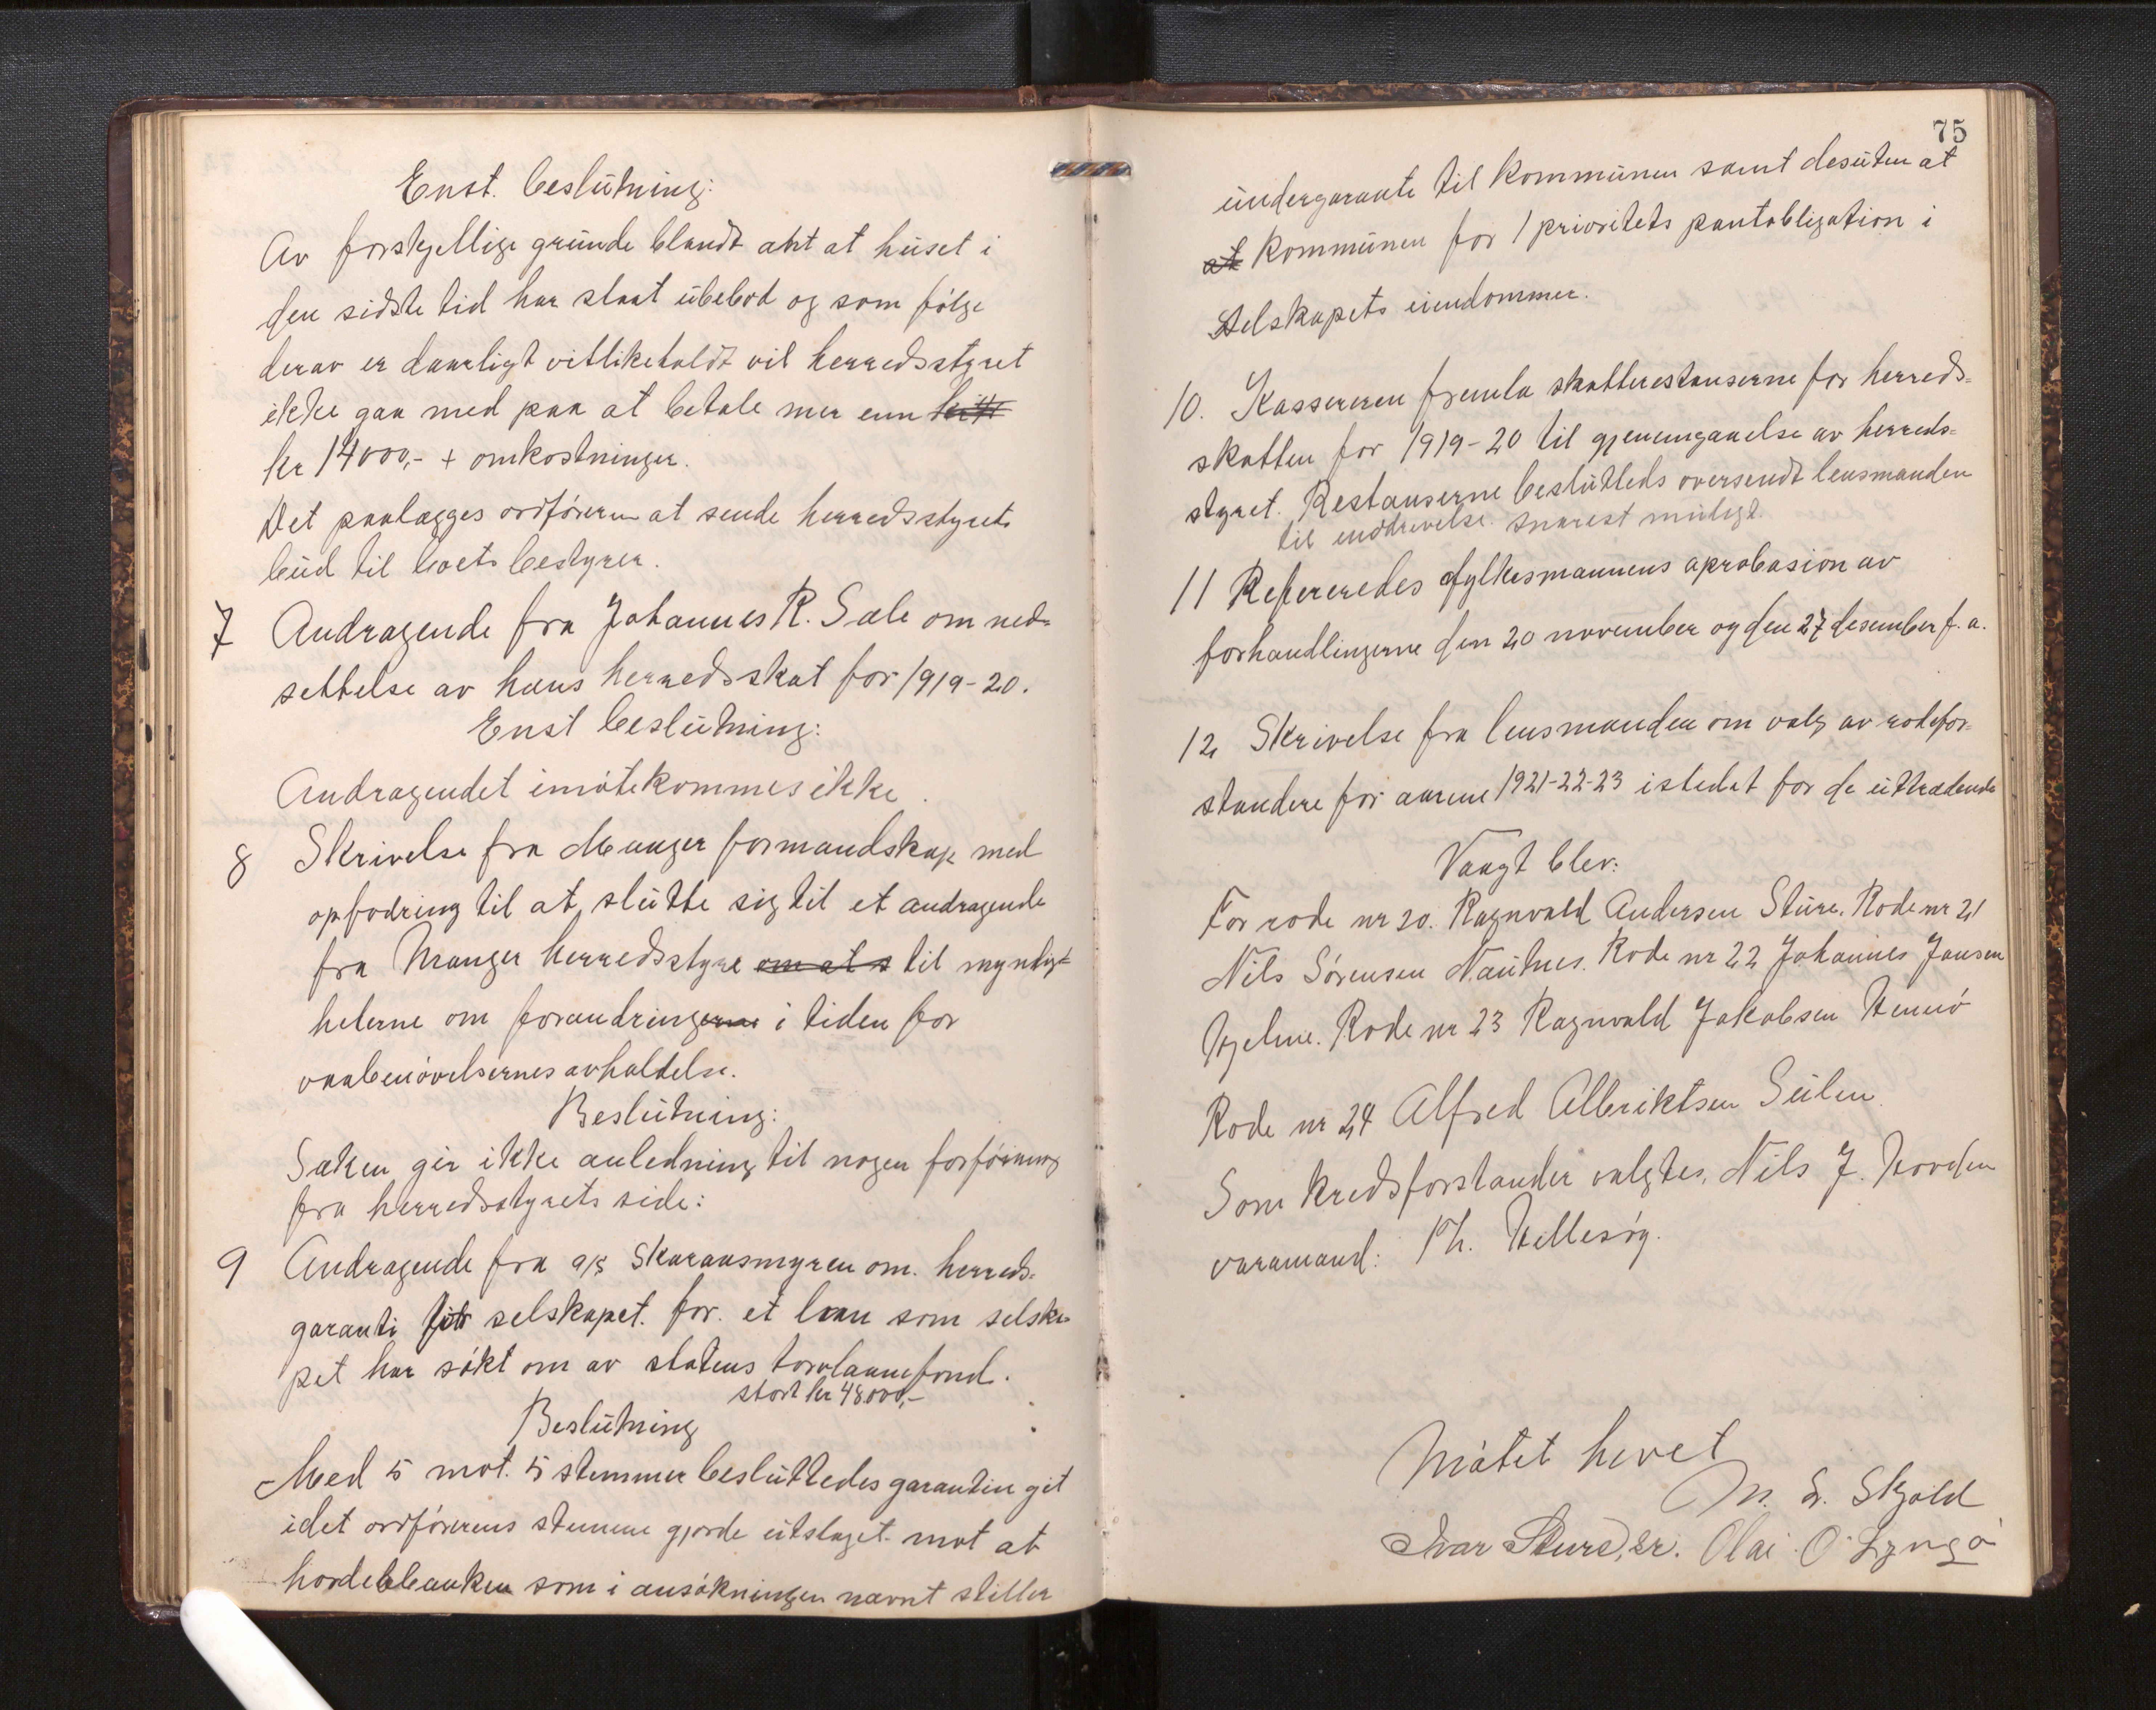 Enst. beslutning:
Av forskjellige grunde blandt ant at huset i
den sidste tid har staat ubebod og som følge
derav er daarligt vitlikeholdt vil herredsstyret
ikke gaa med paa at betale mer enn
kr 14000,- + omkostninger.
Det paalægges ordføreren at sende herredsstyrets
bud til boets bestyrer.
7 Andragende fra Johannes R. Sæle om ned-
settelse av hans herredsskat for 1919-20.
Enst beslutning:
Andragendet imøtekommes ikke.
8 Skrivelse fra Manger formandskap med
opfodring til at slutte sig til et andragende
fra Manger herredsstyre om at s til myndig-
heterne om forandringerne i tiden for
vaabenøvelsernes avholdelse.
Beslutning:
Saken gir ikke anledning til nogen forføining
fra herredsstyrets side:
9 Andragende fra a/s Skaraasmyren om herreds-
garanti for selskapet. for. et laan som selska-
pet har søkt om av statens torvlaanefond.
stort kr 48000,-
Beslutning
Med 5 mot. 5 stemmer besluttedes garantien git
idet ordførerens stemme gjorde utslaget mot at
hordebbanken som i ansøkningen nævnt stiller
75
undergarante til kommunen samt desuten at
at kommunen får 1 prioritets pantobligation i
selskapets eiendommer.
10. Kassereren fremla skatterestanserne for herreds-
skatten for 1919-20 til gjennemgaaelse av herreds-
styret. Restanserne beslutteds oversendt lensmanden
til inddrivelse snarest muligt.
11 Refereredes fylkesmannens aprobasion av
forhandlingerne den 20 november og den 27 desember f. a.
12 Skrivelse fra lensmanden om valg av rodefor-
standere for aarene 1921-22-23 istedet for de uttrædende
Vaagt blev:
For rode nr 20. Ragnvald Andersen Sture. Rode nr 21
Nils Sørensen Nautnes. Rode nr 22 Johannes Jansen
Hjelme. Rode nr 23 Ragnvald Jakobsen Hernø
Rode nr 24 Alfred Albriktsen Seilen.
Som kredsforstander valgtes, Nils J. Hovden
varamand: Th. Hellesøy.
Møtet hevet
M. S. Skjold
Ivar Sture, sr. Olai O Lyngø